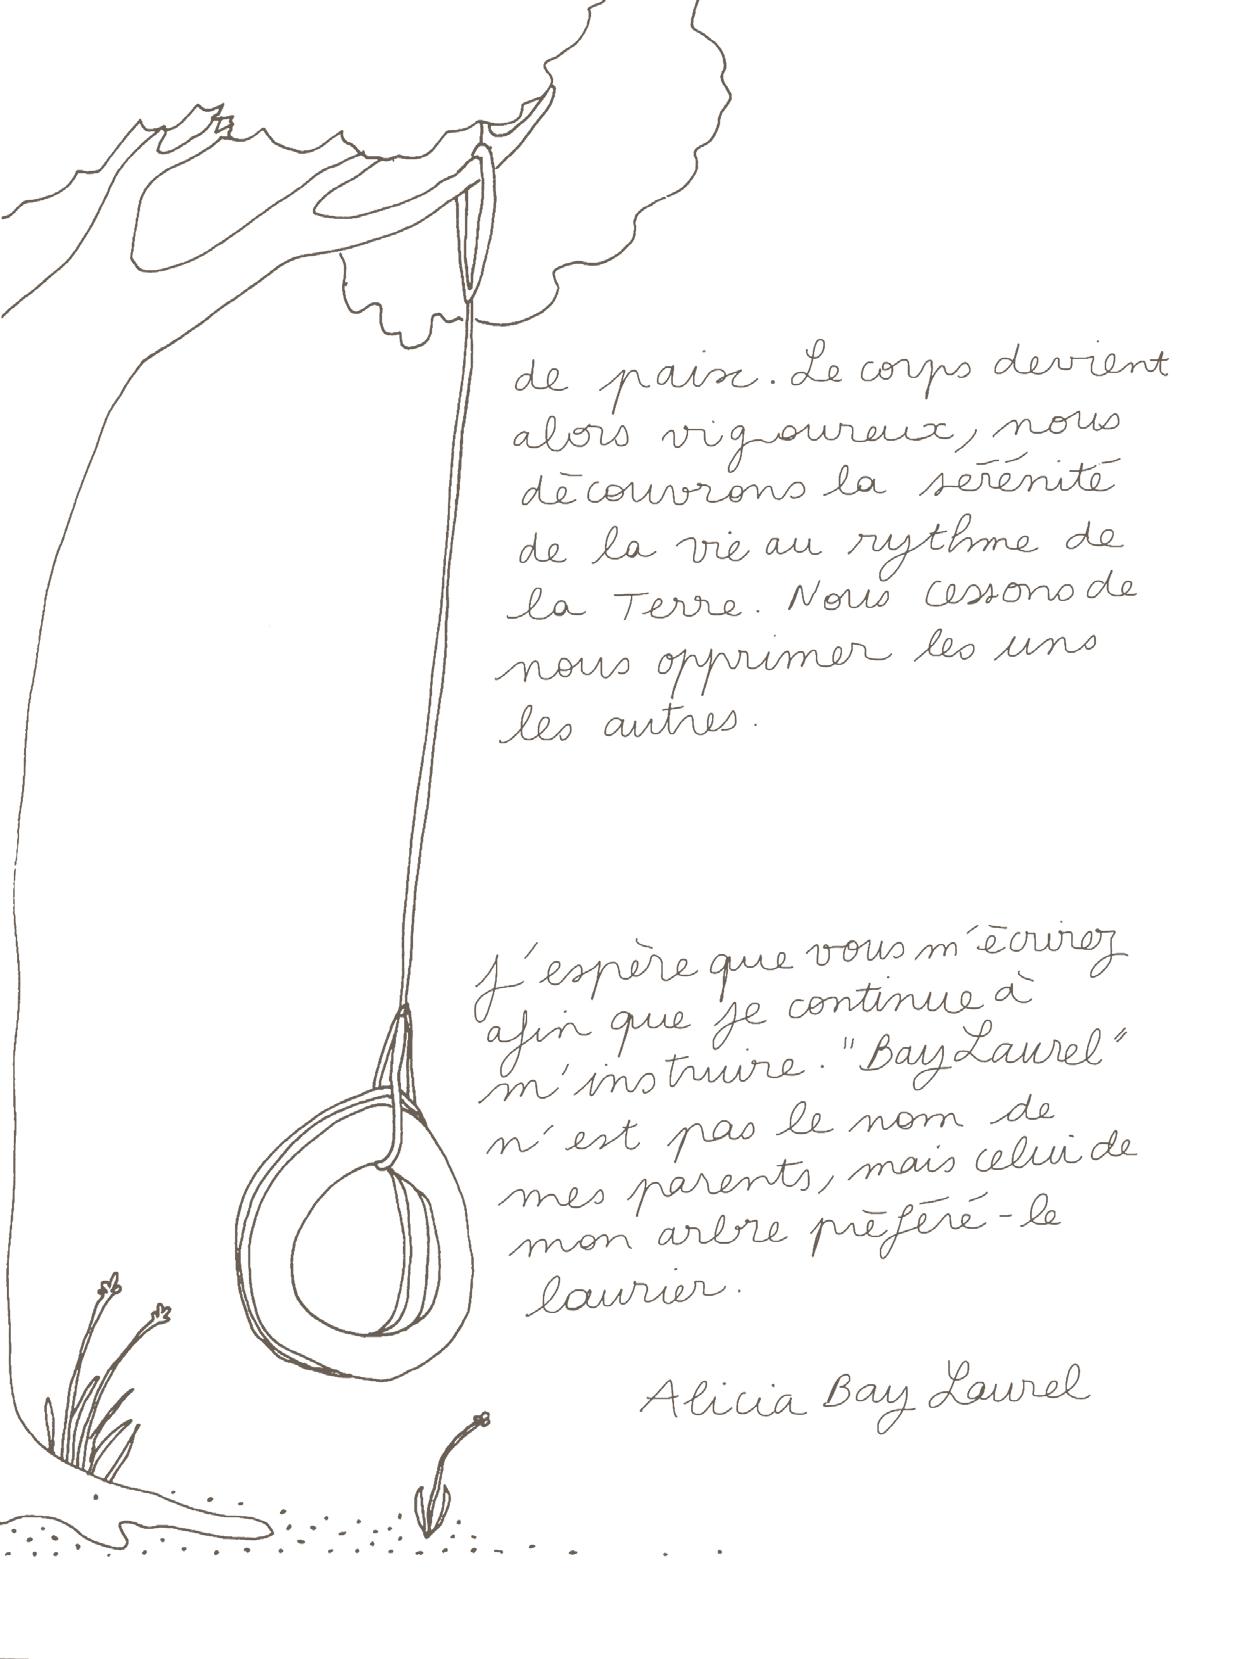 de paix. Le corps devient
alors vigoureux, nous
découvrons la sérénité
de la vie au rythme de
la Terre. Nous cessons de
nous opprimer les uns
les autres.
J'espère que vous m'écrirez
afin que je continue à
m'instruire. "Bay Laurel"
n'est pas le nom de
mes parents, mais celui de
mon arbre préféré - le
laurier.
Alicia Bay Laurel